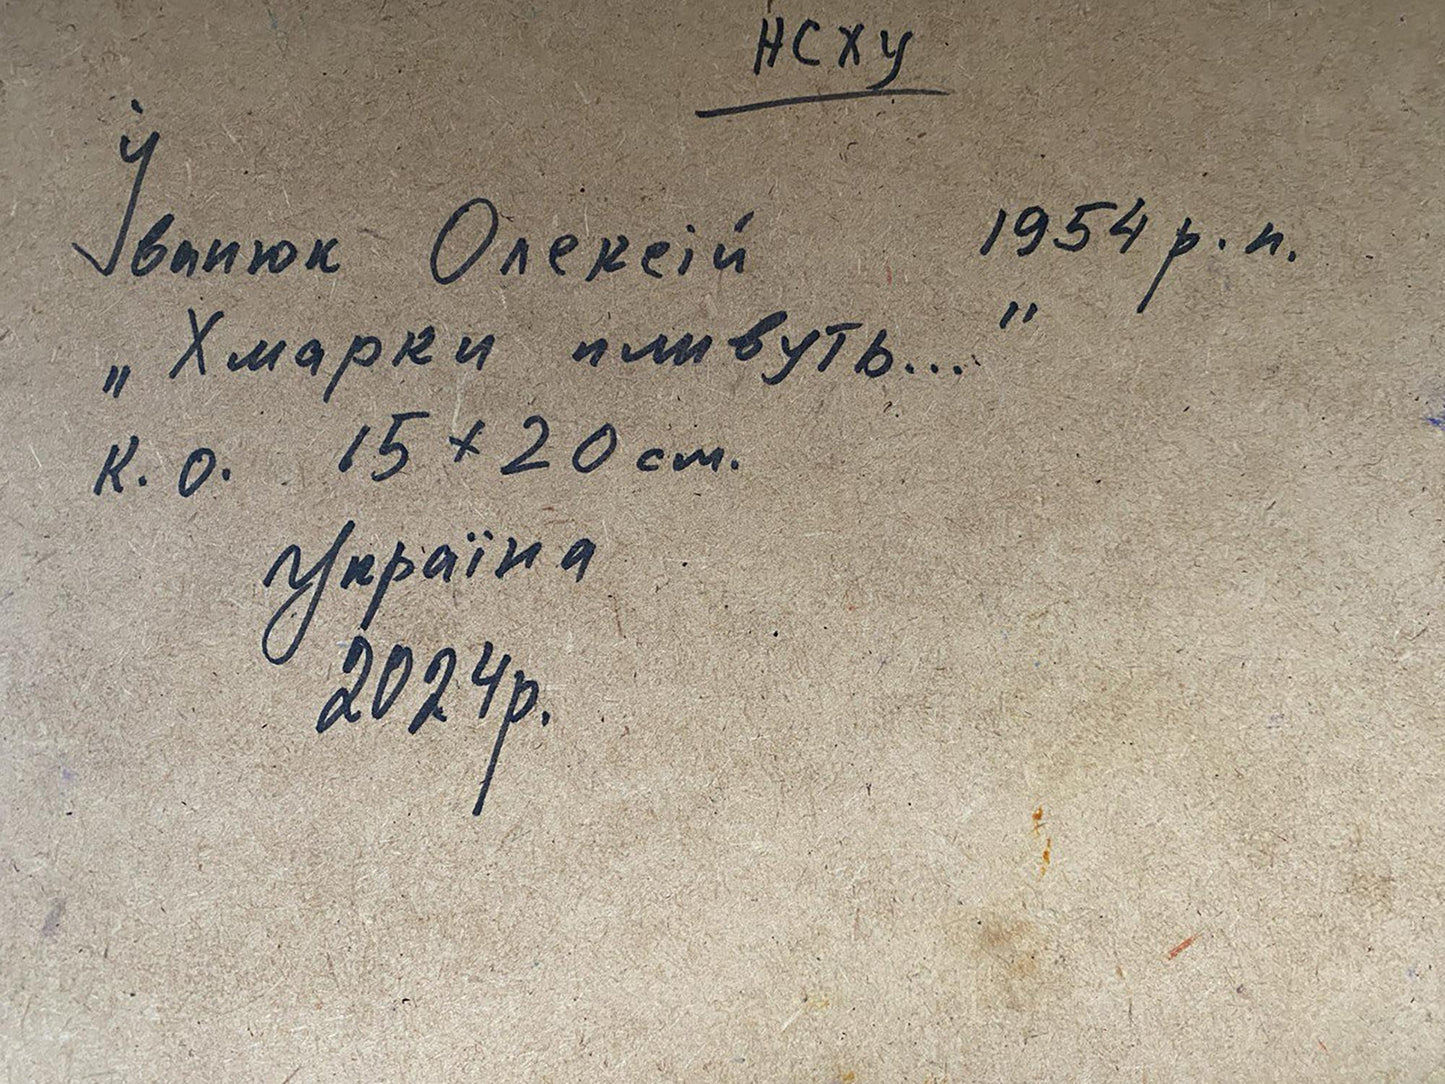 НСХУ
Іванюк Олексій 1954 р.н.
„Хмарки пливуть..."
К.О. 15×20 см.
Україна
2024р.